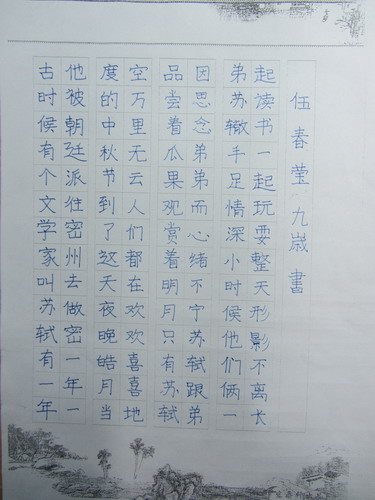 古时候有个文学家叫苏轼有一年
他被朝廷派往密州去做密一年一
度的中秋节到了这天夜晚皓月当
空万里无云人们都在欢欢喜喜地
品尝着瓜果观赏着明月只有苏轼
因思念弟弟而心绪不宁苏轼跟弟
弟苏辙手足情深小时候他们俩一
起读书一起玩耍整天形影不离长
伍春莹九歲書